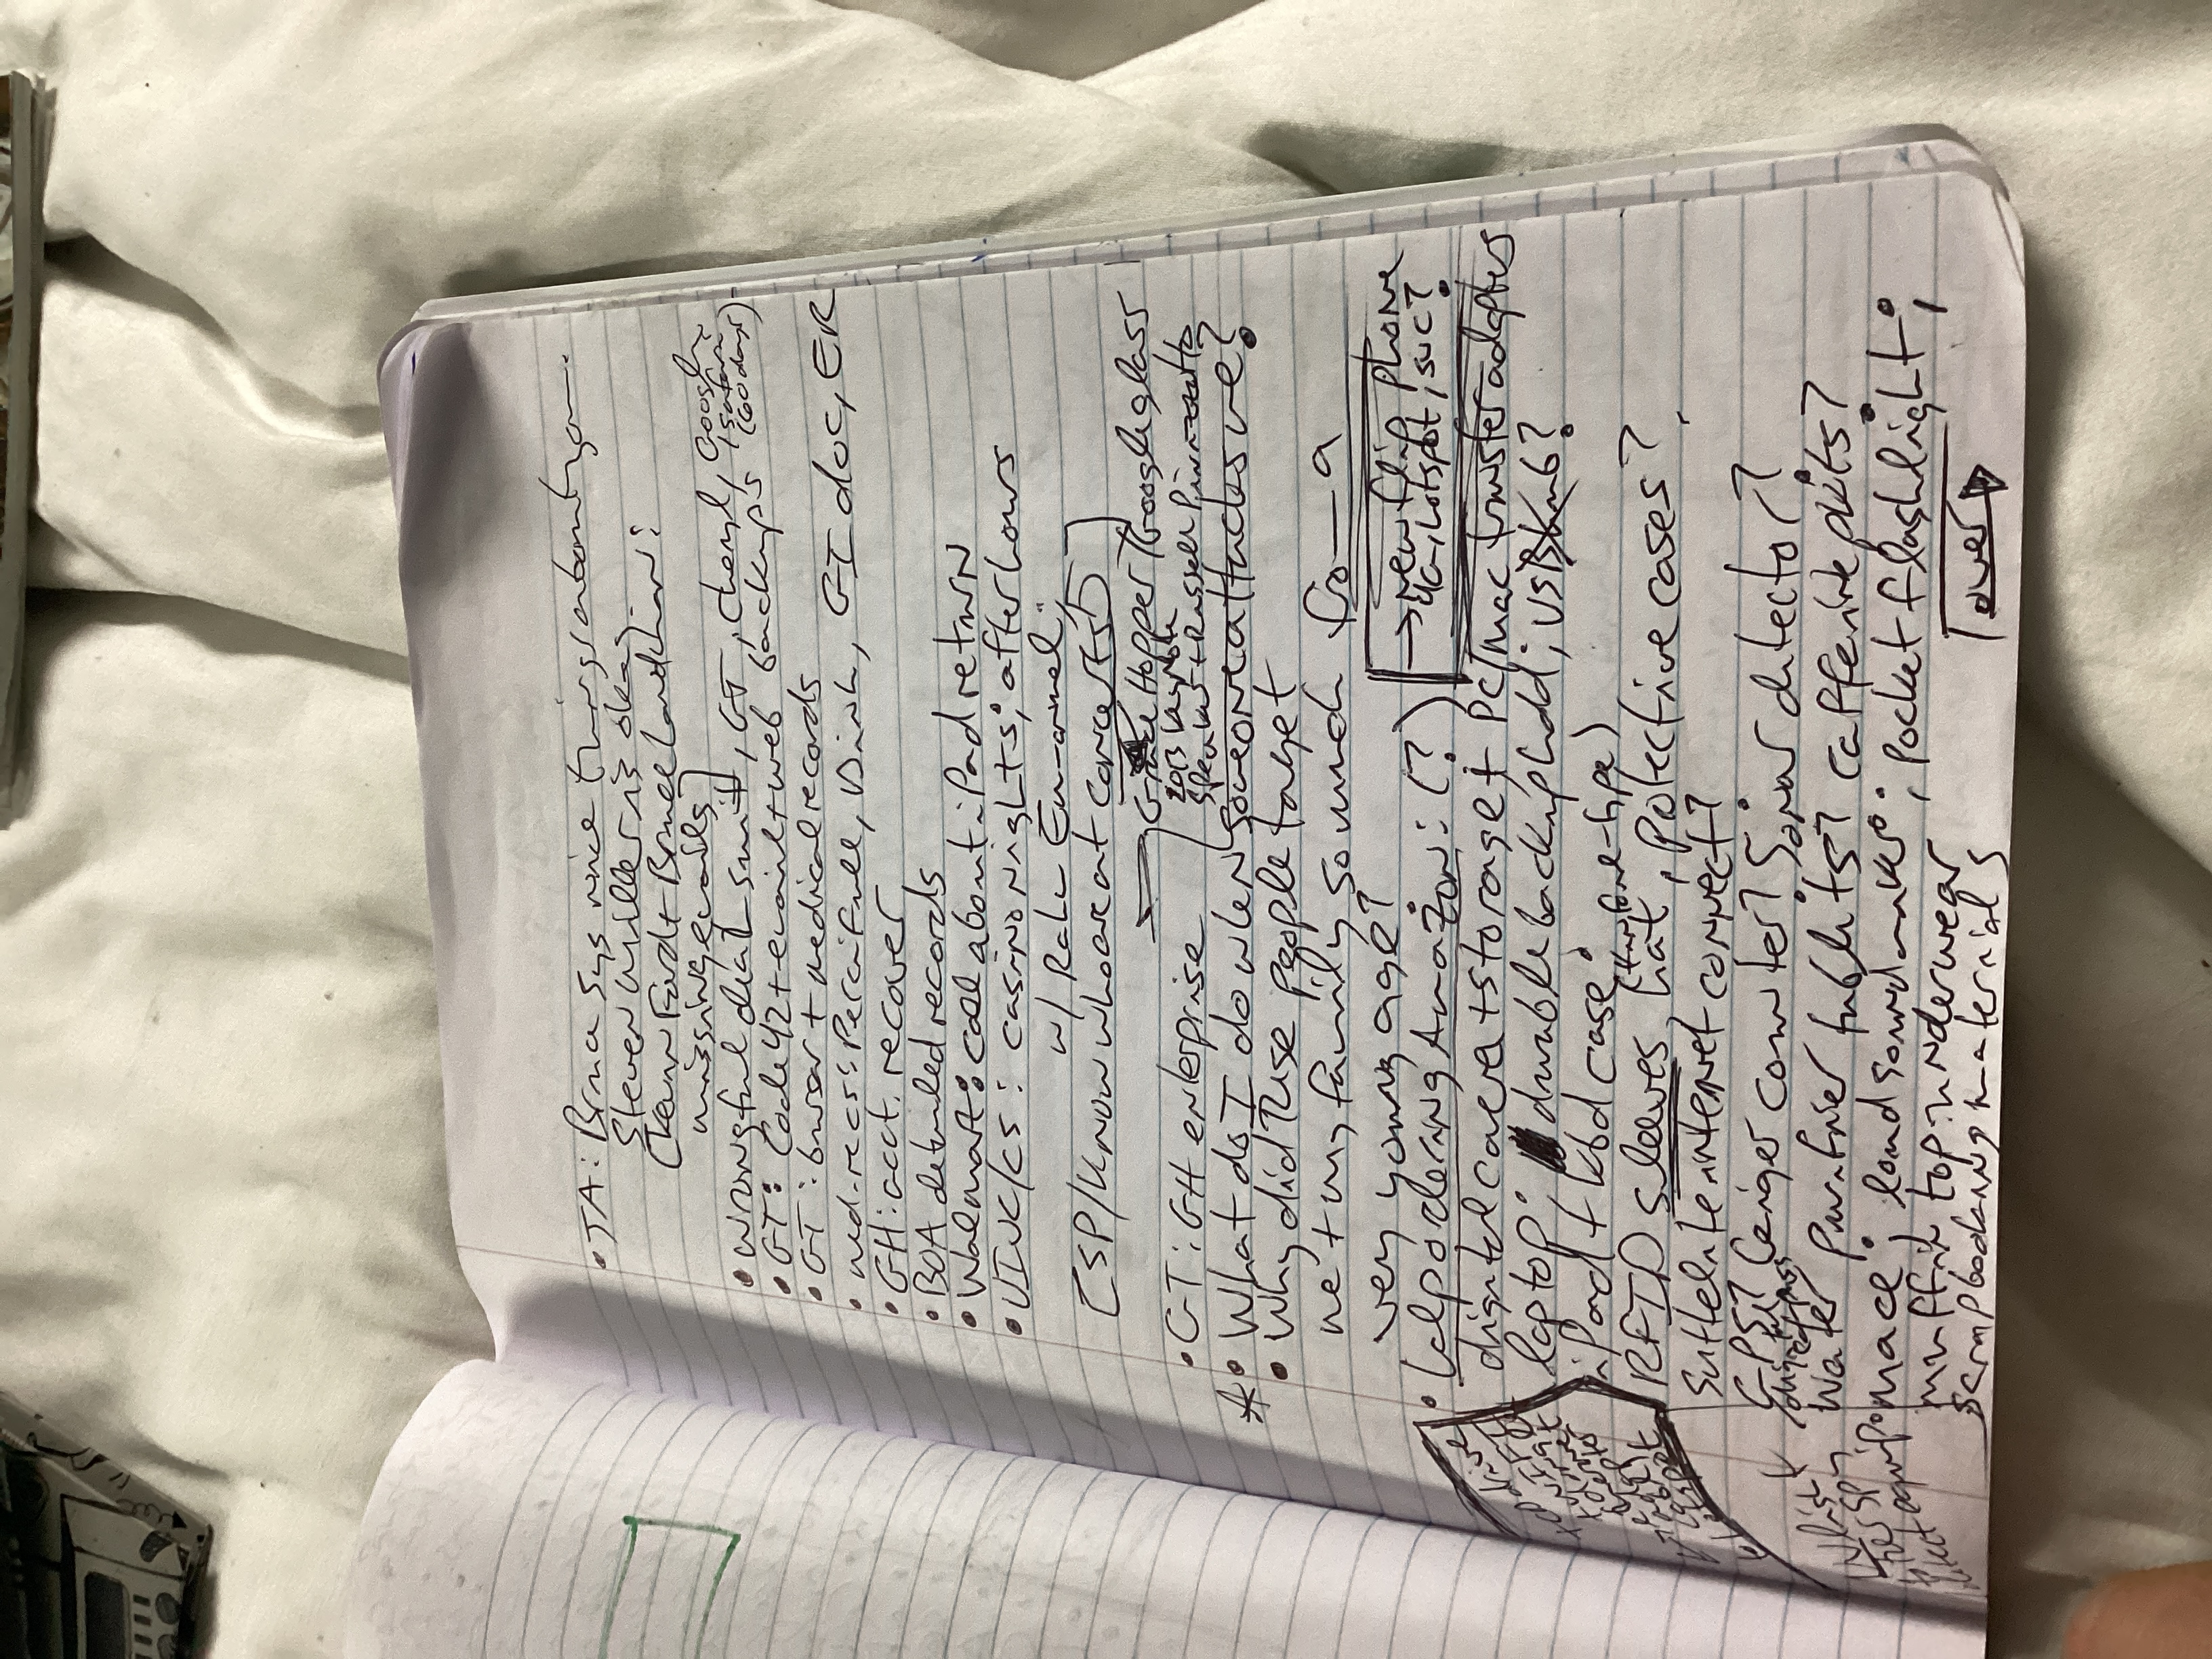 • TA: Bruce sys nice things about you.
Steven Miller is okay.
[Kevin Ford + Bruce Landman:
missing emails]
• wrongful death suit, GT, Cheryl, Google, safari
• GT: Code42 + email + web backups (60 days)
• GT: bursar + medical records
• med. recs: Percifull, Dinh, GI doc, ER
• GH: acct. recover
• BOA detailed records
• Walmart: call about iPad return
• UIUC/CS: casino nights; after hours
w/
[SP/Know who are at concerts]
→ Grace Hopper/Google glass
2013 keynote
• GT: GH enterprise
speaker + Russell
☆• What do I do when someone attacks me?
• Why did these people target
me + my family so much from a
very young age?
→ new flip phone
4G, hotspot, svc?
• help ordering Amazon: (?)
digital camera + storage + PC/mac transfer adapters
laptop; durable backup hdd; USB
iPad + kbd case;
RFID sleeves, hat, (-type) protective cases?,
sattelite internet connect?
GPS? Geiger counter? Sonar detector?
digital compass
water purifier tablets? caffeine pkts?
mace; loud sound maker; pocket flashlight;
muffin top underwear
scrapbooking materials
over →
+ cd drive
+ WIFI
dongle
+ ethernet
adapter
cable +
hotspot
Whisht
other spy
detect equip.